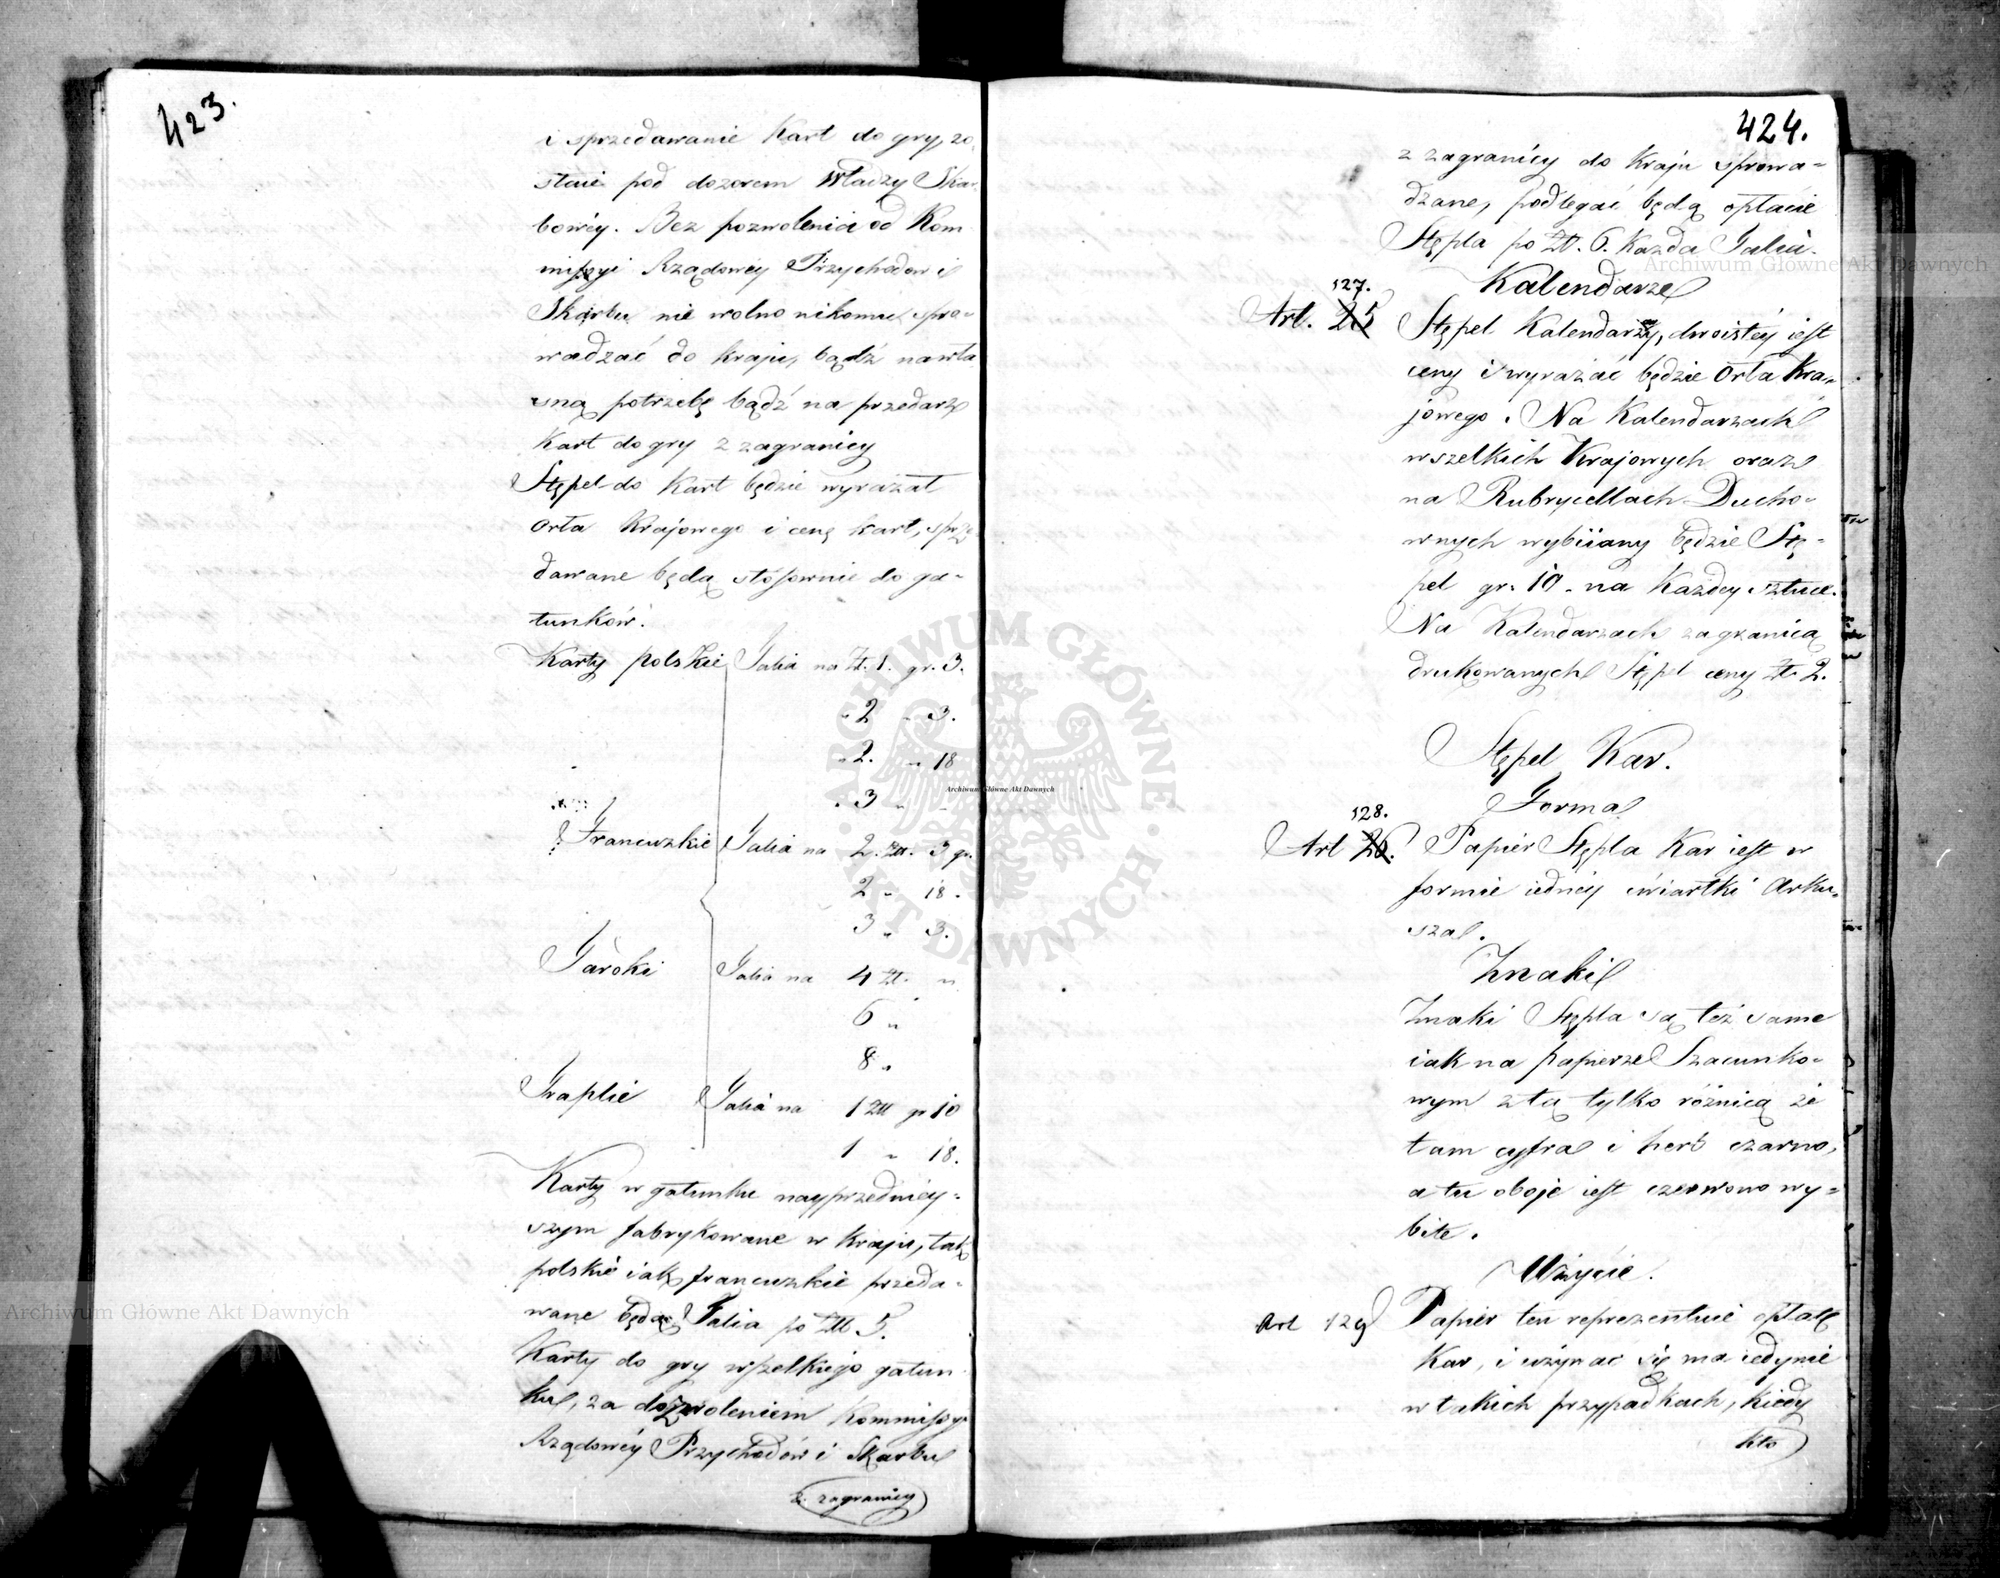 423.
i sprzedawanie Kart do gry, zo-
staie pod dozorem Władzy Skar-
bowéy. Bez pozwolenia od Kom-
missyi Rządowéy Przychodów i
Skarbu nie wolno nikomu spro-
wadzać do kraju, bądź na wła-
sną potrzebę bądź na przedarz
Kart do gry z zagranicy
Stępel do Kart będzie wyrażał
Orła Krajowego i cenę kart, sprze-
dawane będą stósownie do ga-
tunków.
Karty polskie Talia na Zł. 1. gr. 3.
" 2 " 3.
" 2. " 18
" 3 " "
Francuzkie Talia na 2. Zł. 3 gr.
2 " 18.
3 " 3.
Taroki Talia na 4 Zł. "
6 "
8 "
Traplie Talia na 1 Zł gr 10
1 " 18.
Karty w gatunku nayprzedniey-
szym fabrykowane w kraju, tak
polskie iak francuzkie przeda-
wane będą Talia po Zł 5.
Karty do gry wszelkiego gatun-
ku, za dozwoleniem Kommissyi
Rządowéy Przychodów i Skarbu
z zagranicy
424.
z zagranicy do Kraju sprowa-
dzane, podlegać będą opłacie
Stępla po Zł. 6. Każda Talia.
Kalendarze
127.
Art. 25 Stępel Kalendarzy, dwoistéy iest
ceny i wyrażać będzie Orła Kra-
jowego. Na Kalendarzach
wszelkich Krajowych oraz
na Rubrycellach Ducho-
wnych wybiiany będzie Stę-
pel gr. 10. na Każdey sztuce.
Na Kalendarzach zagranicą
drukowanych Stępl ceny Zł. 2.
Stępel Kar.
Forma
128.
Art 26. Papiér Stępla Kar iest w
formie iednéy ćwiartki Arku-
sza.
Znaki
Znaki Stępla są też same
iak na papierze Szacunko-
wym z tą tylko różnicą że
tam cyfra i herb czarno,
a tu oboje iest czerwono wy-
bite.
Użycie.
Art 129 Papiér ten reprezentuie opłatę
Kar, i używać się ma iedynie
w takich przypadkach, kiedy
kto
Archiwum Główne Akt Dawnych
Archiwum Główne Akt Dawnych
Archiwum Główne Akt Dawnych
ARCHIWUM GŁÓWNE AKT DAWNYCH